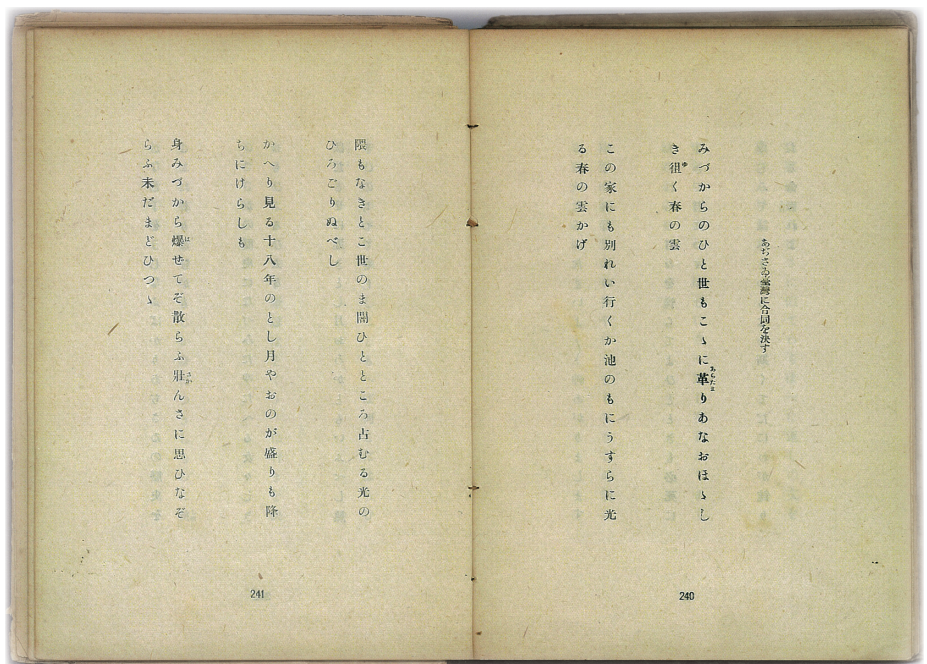 あぢさゐ臺灣に合同を決す
みづからのひと世もこゝに革りあなおほゝし
き徂く春の雲
この家にも別れい行くか池のもにうすらに光
る春の雲かげ
240
隈もなきとこ世のま闇ひとところ占むる光の
ひろごりぬべし
かへり見る十八年のとし月やおのが盛りも降
ちにけらしも
身みづから爆せてぞ散らふ壯んさに思ひなぞ
らふ未だまどひつゝ
241